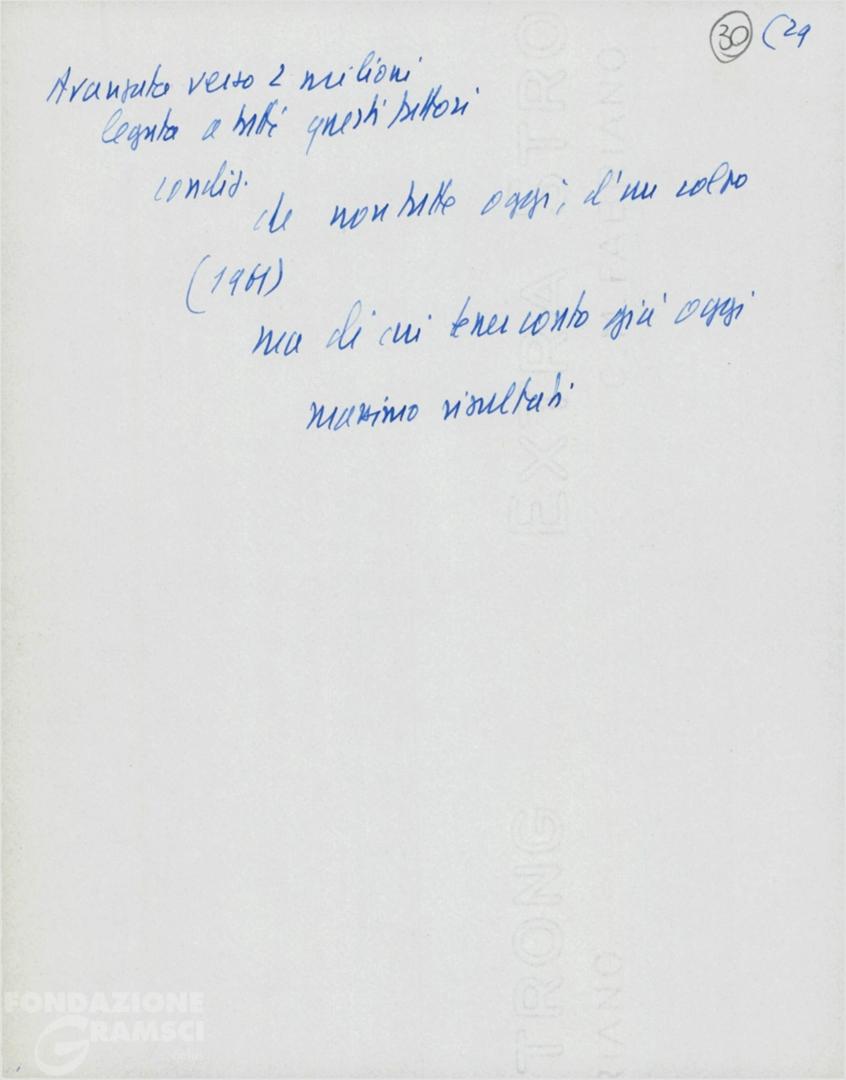 30 (29
Avanzata verso 2 milioni
legata a tutti questi fattori
condiz.
che non tutte oggi, d'un colpo
(1961)
ma di cui tener conto già oggi
massimo risultati
EXTRA STRONG
FABRIANO
FONDAZIONE
GRAMSCI